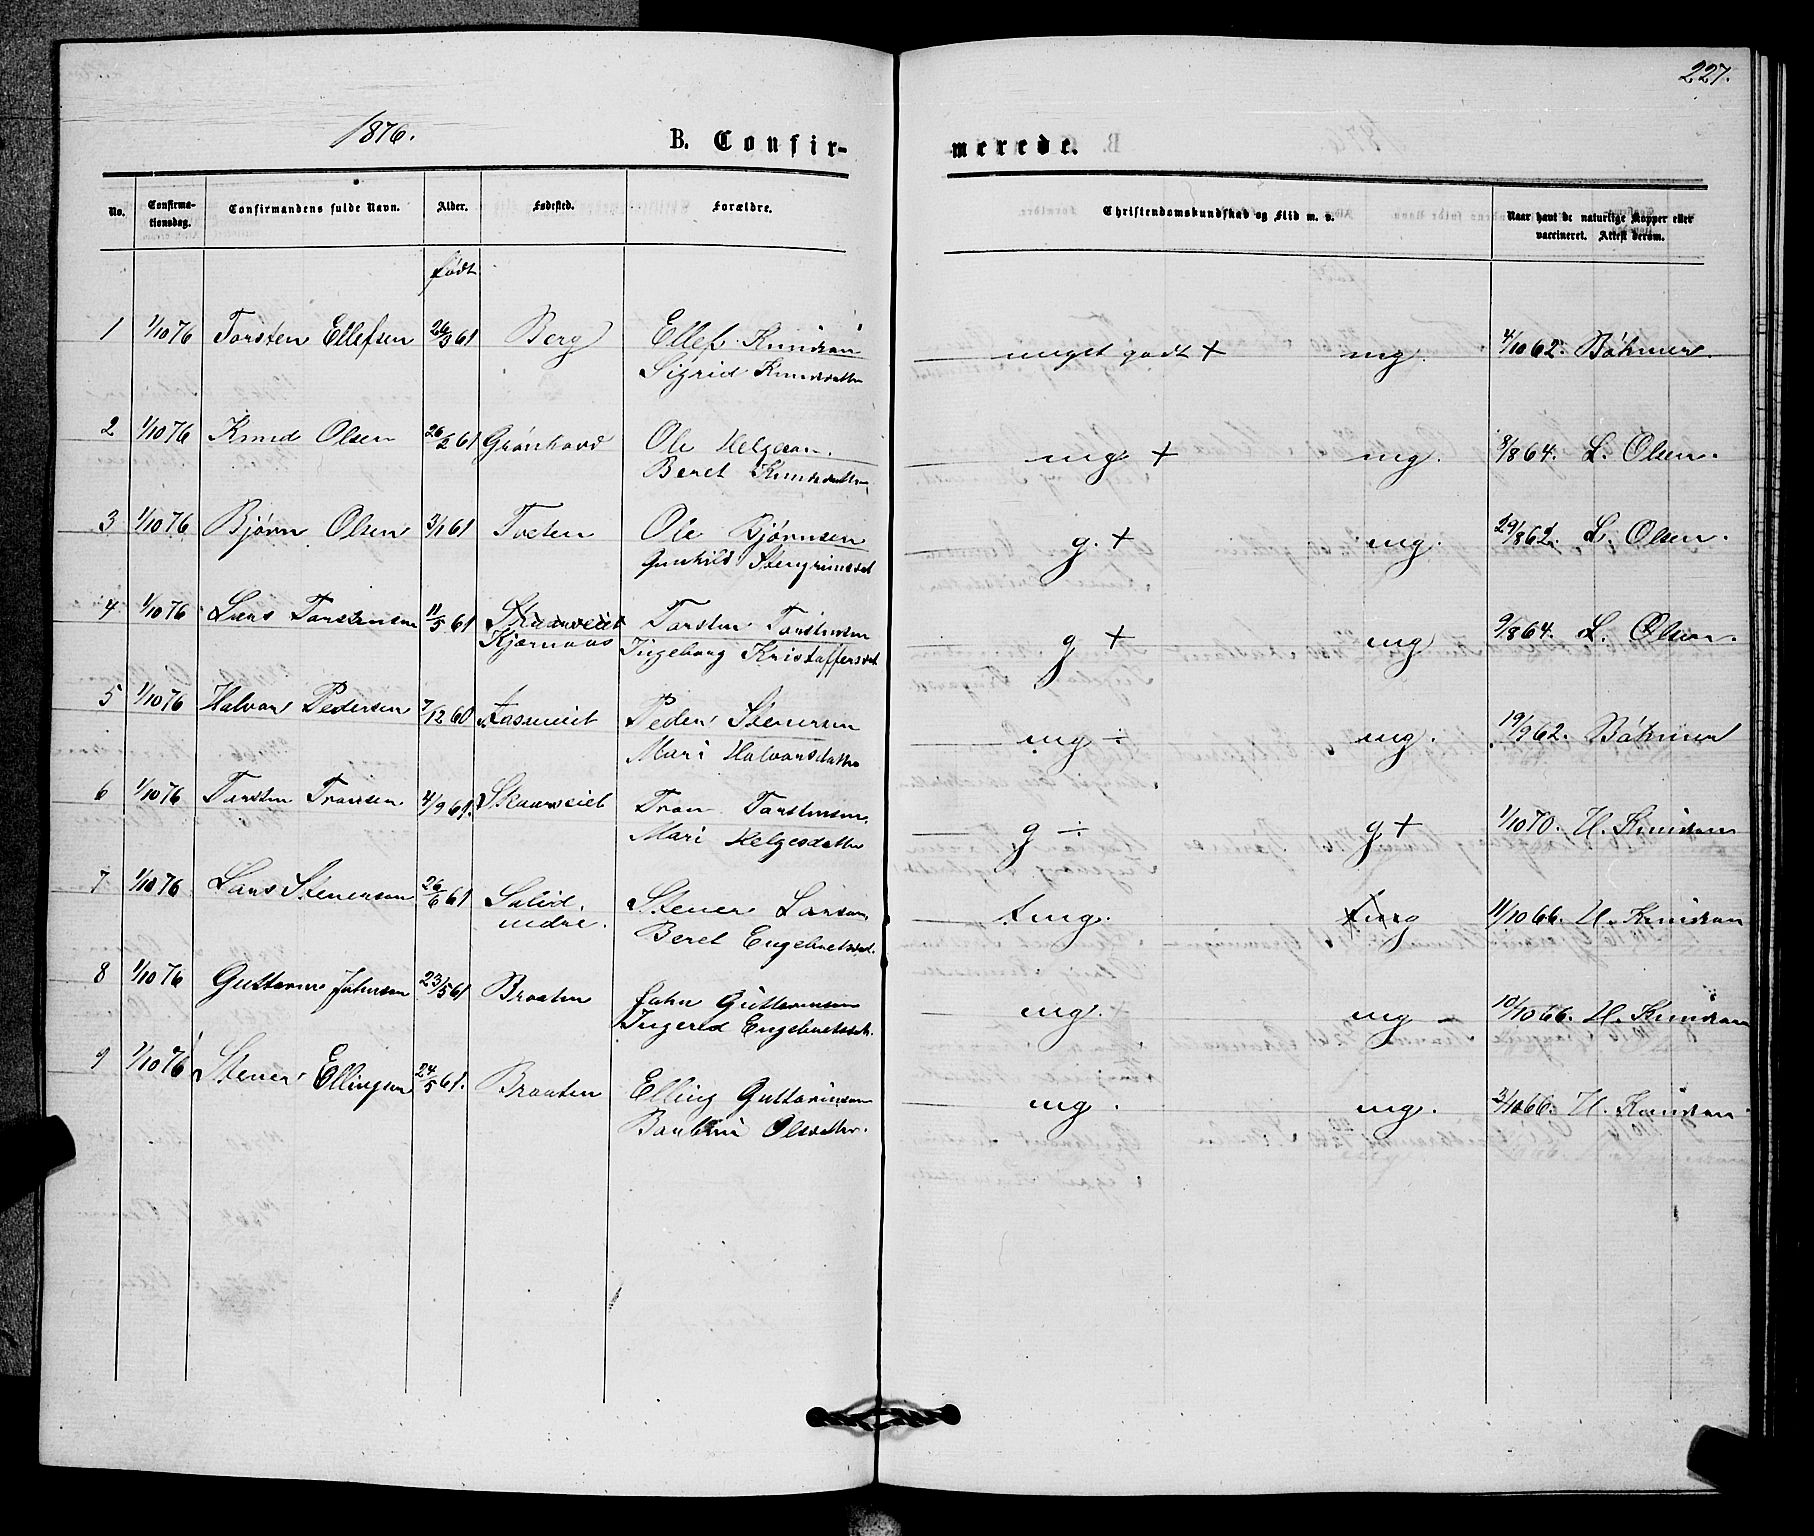 227.
1876.
B. Confir- merede.
No. Confirma-tionsdag. Confirmandens fulde Navn. Alder. Fødested. Forældre. Christendomskundskab og Flid m. v. Naar havt de naturlige Kopper eller vaccineret. Attest derom.
født
1 1/10 76 Torsten Ellefsen 26/3 61 Berg Ellef Knudsen meget godt + mg. 4/10 62. Böhmer
Sigrid Knudsdatter
2 1/10 76 Knud Olsen 26/2 61 Grönhovd Ole Helgesen. mg. + mg. 8/8 64. L. Olsen.
Beret Knudsdatter
3 1/10 76 Bjørn Olsen 3/1 61 Tveten Ole Bjørnsen g. + mg. 29/8 62. L. Olsen.
Gunhild Stengrimsdat
4 1/10 76 Lars Torstensen 11/5 61 Skaarveiet Torsten Torstensen g + mg 9/8 64. L. Olsen.
Kjærnaas Ingeborg Kristoffersdat
5 1/10 76 Halvor Pedersen 7/12 60 Aasveiet Peder Stenersen mg ÷ mg. 19/9 62. Böhmer
Mari Halvorsdatter
6 1/10 76 Torsten Tronsen 4/9 61. Skaarveiet Tron Torstensen. g ÷ g + 1/10 70. H. Knudsen
Mari Helgesdatter
7 1/10 76 Lars Stenersen 26/6 61 Solid Stener Larsen tmg. tmg 11/10 66. H. Knudsen
nedre. Beret Engebretsdat.
8 1/10 76 Guttorm Johnsen 23/5 61 Braaten John Guttormsen mg. + mg - 10/10 66. H. Knudsen
Ingerid Engebretsdat.
9 1/10 76 Stener Ellingsen 24/5 61. Braaten Elling Guttormsen mg. mg. 3/10 66. H. Knudsen
Olsdatter.